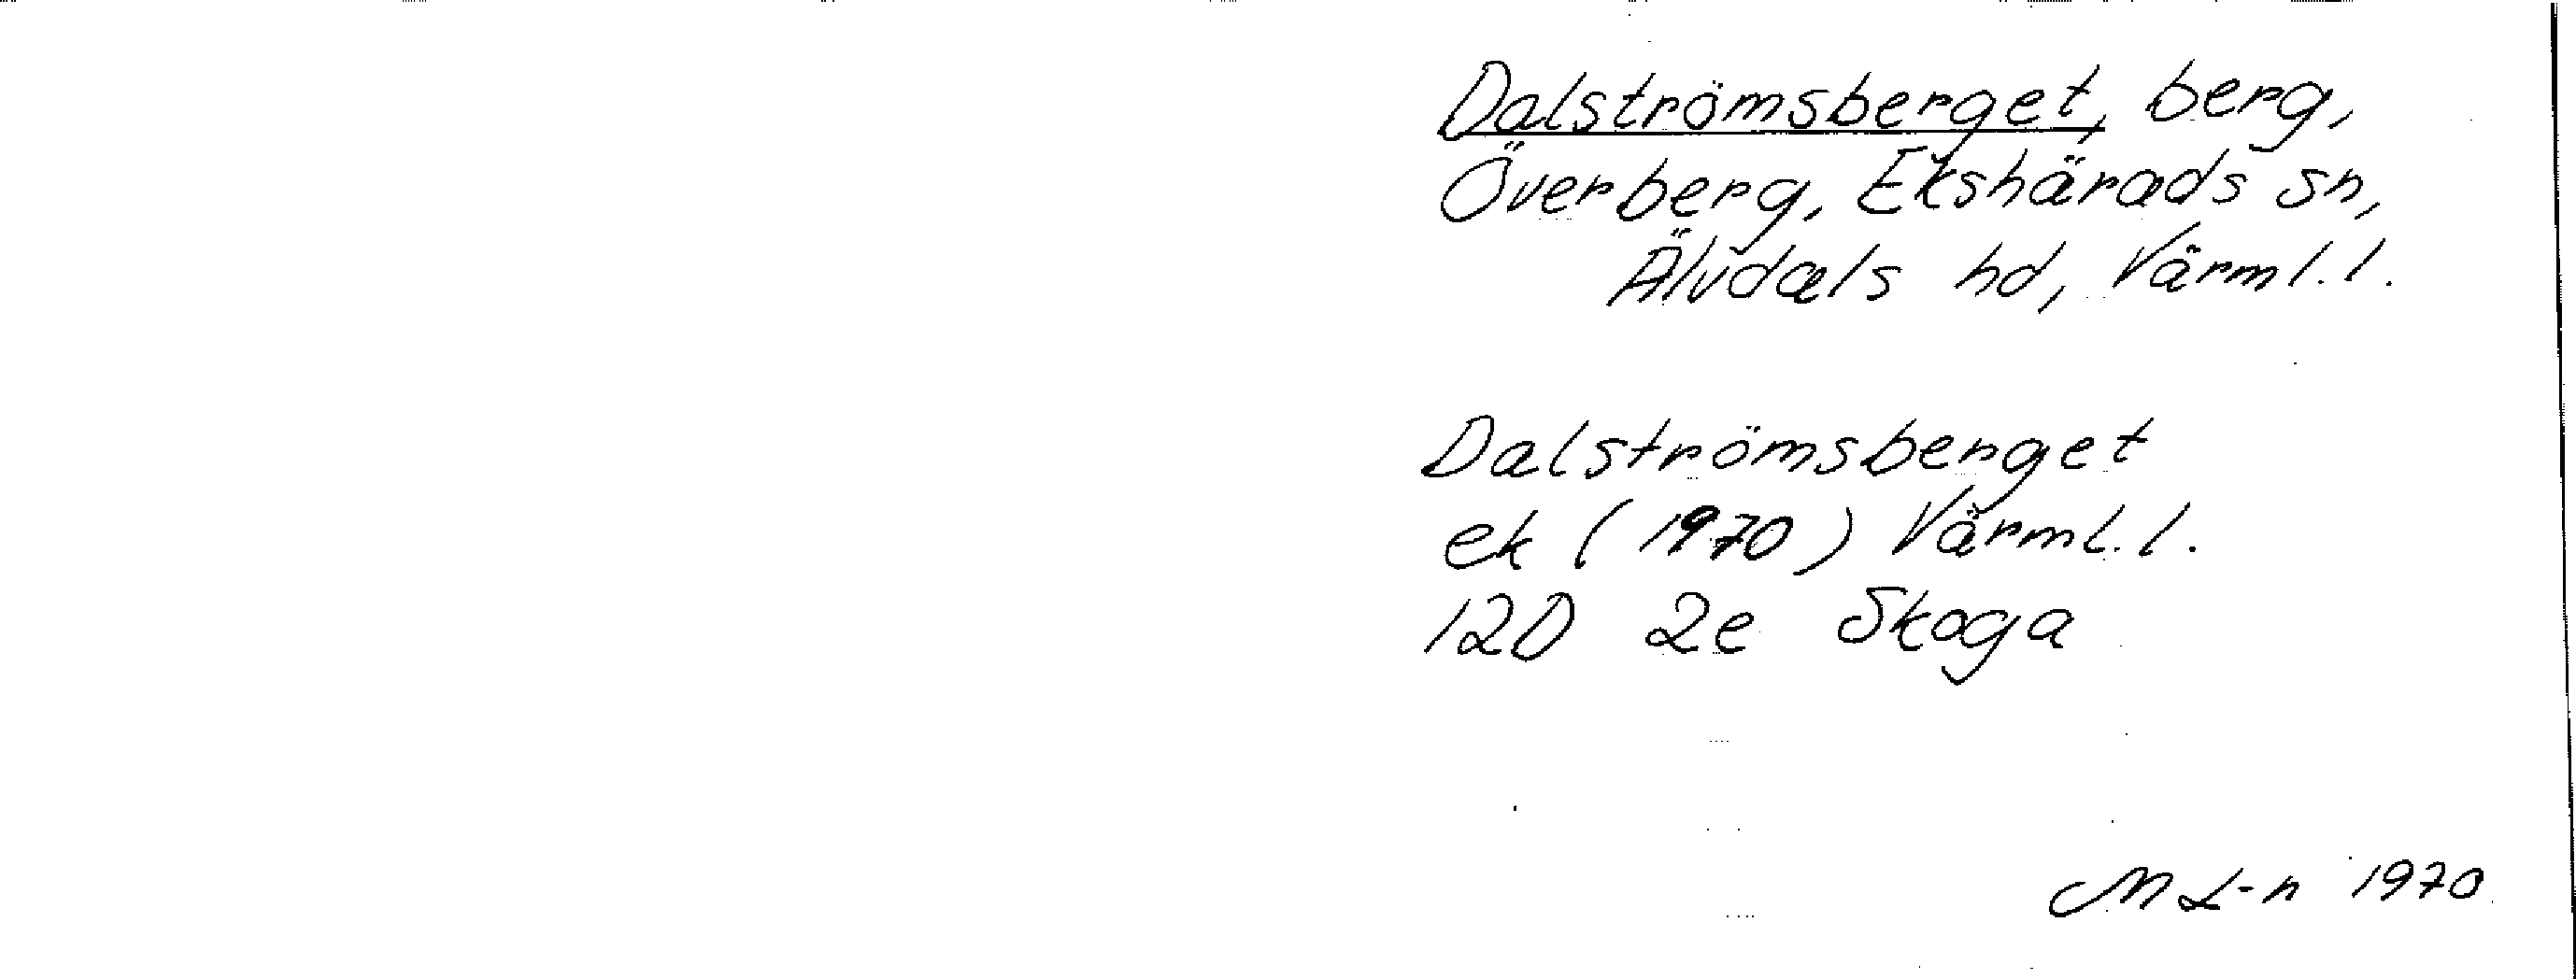 Dalströmsberget, berg,
Överberg, Ekshärads sn,
Älvdals hd, Värml.l.
Dalströmsberget
ek (1970) Värml.l.
12D 2e Skoga
M L-n 1970